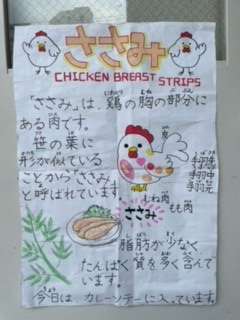 ささみ
CHICKEN BREAST STRIPS
「ささみ」は、鶏の胸の部分に
ある肉です。
笹の葉に
形が似ている
ことから「ささみ」
と呼ばれています。
手羽先
手羽中
手羽元
むね肉
もも肉
ささみ
脂肪が少なく
たんぱく質を多く含んで
います。
今日は カレーソテーに入っています。